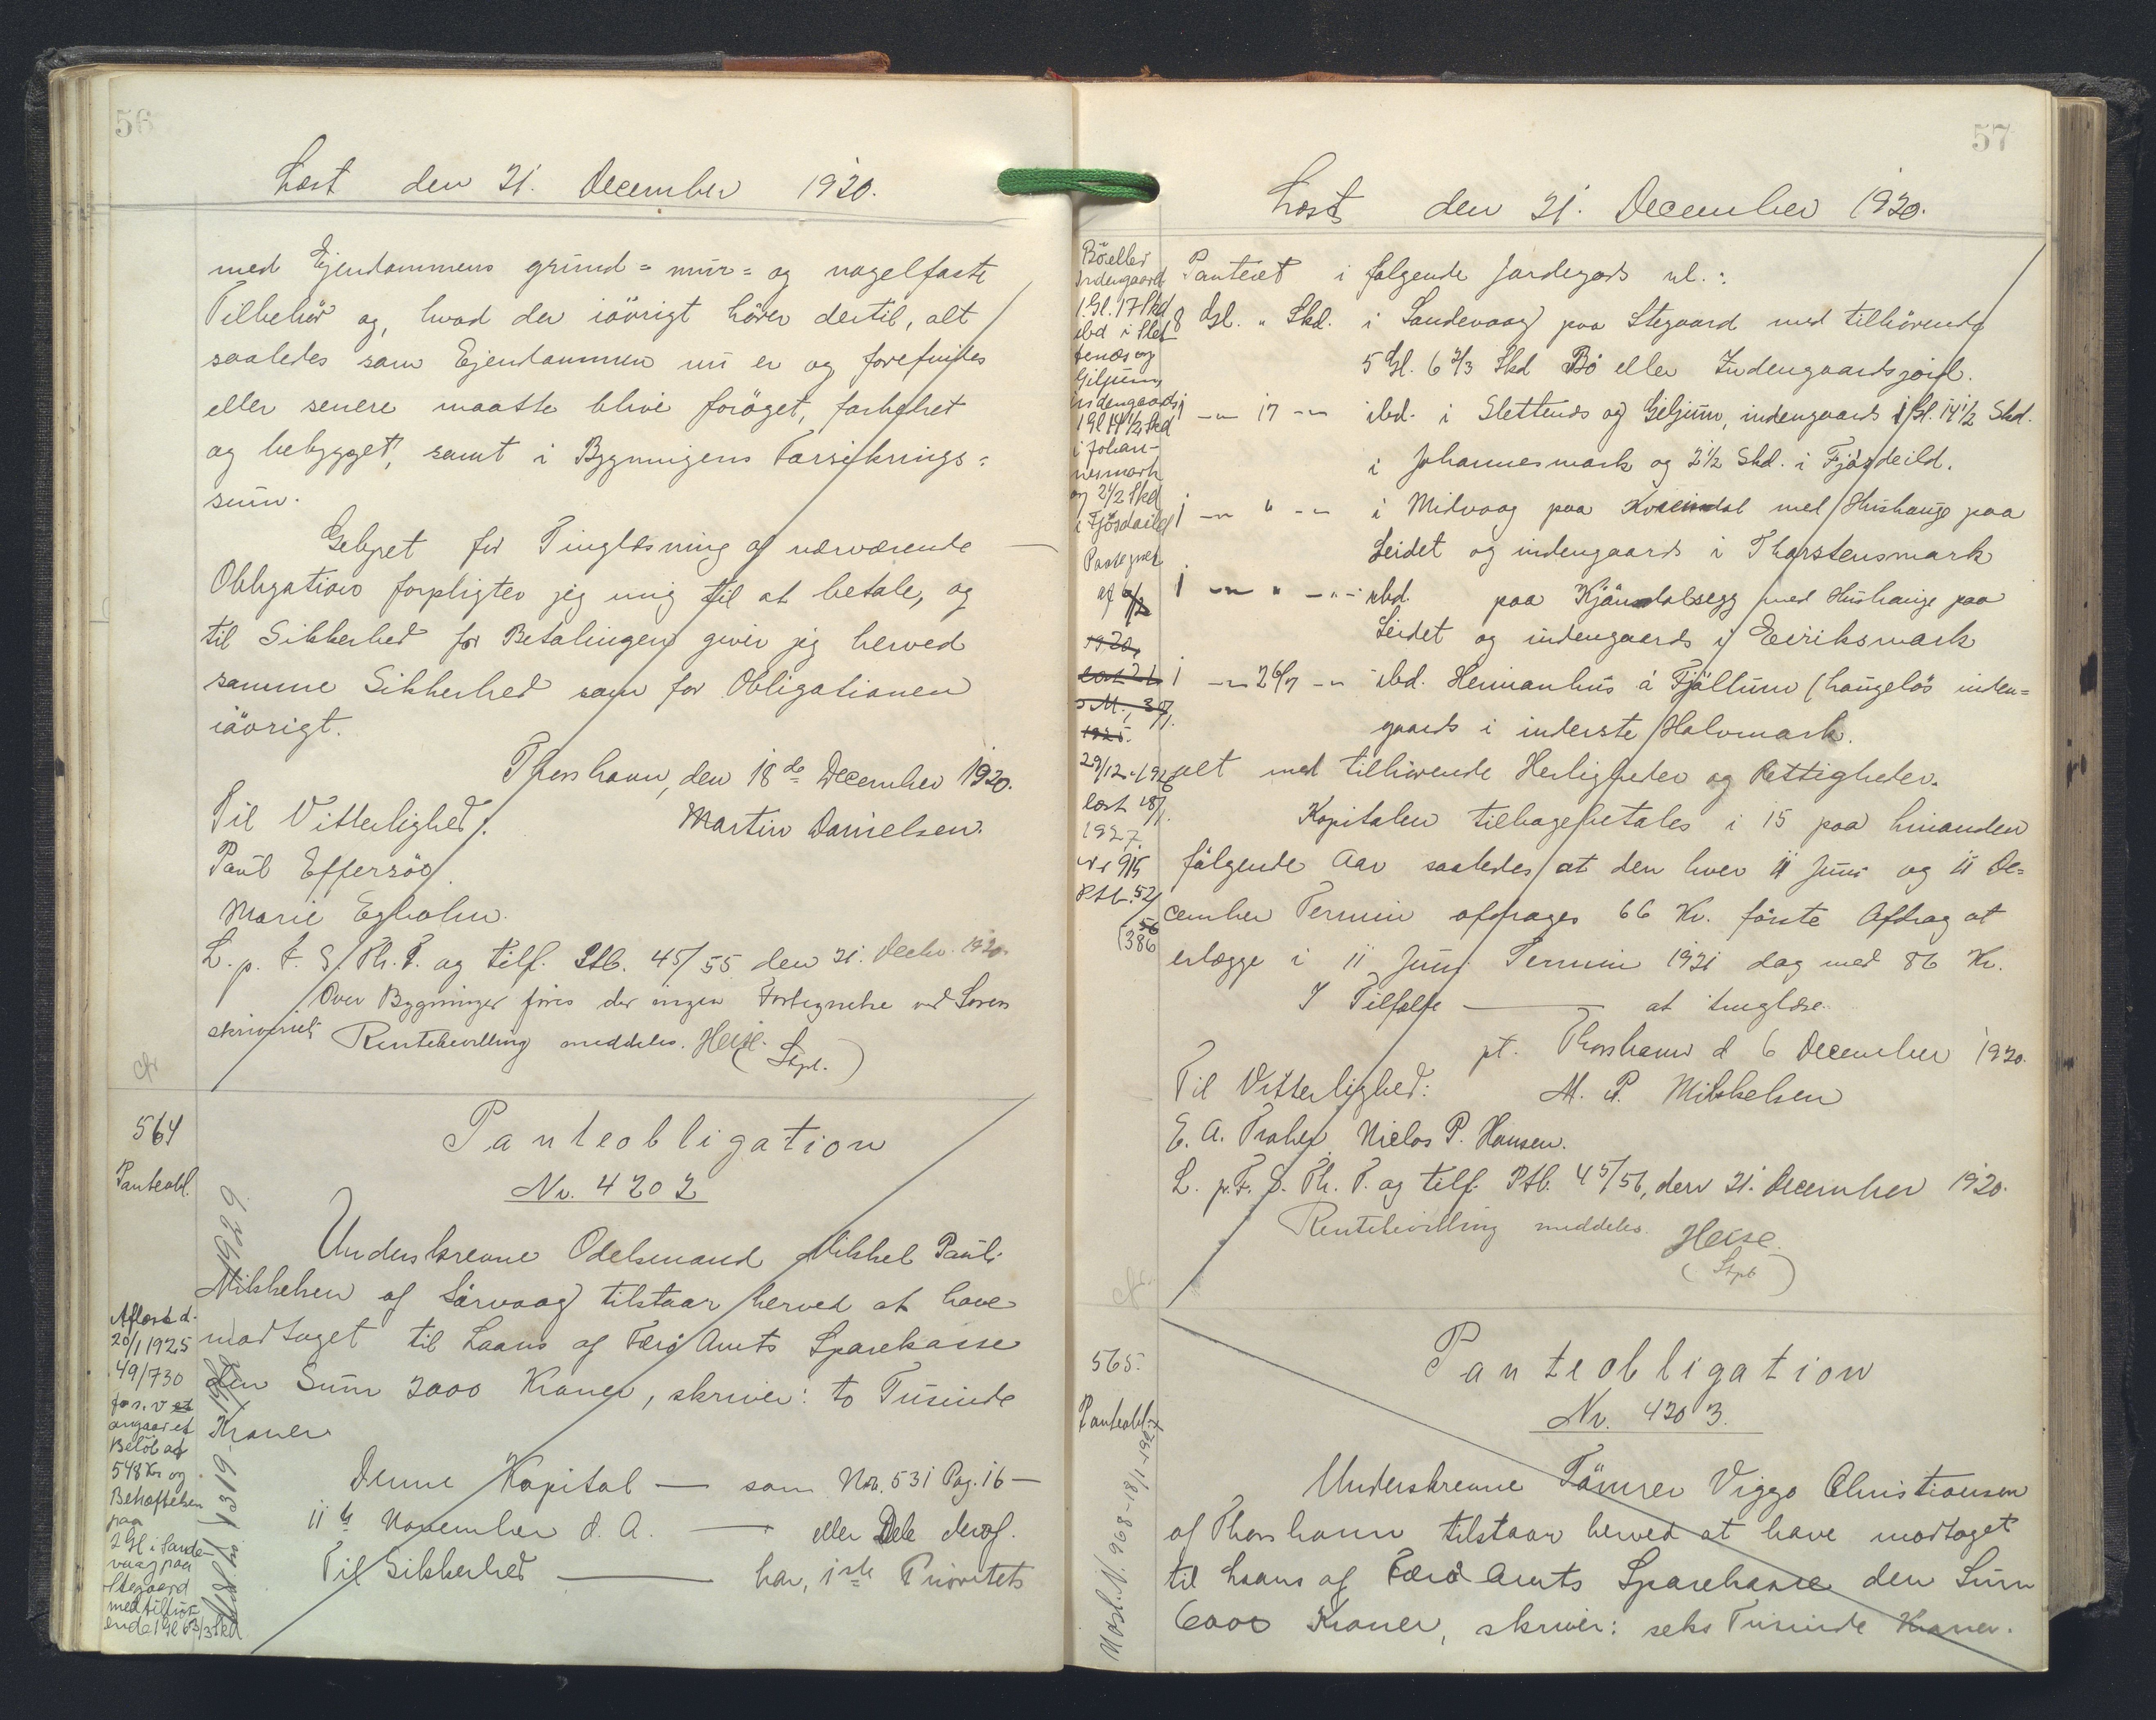 56
Læst den 21. December 1920.
med Ejendommens grund= mur= og nagelfaste
Tilbehör og, hvad der iövrigt hörer dertil, alt
saaledes som Ejendommen nu er og forefindes
eller senere maatte blive foröget, forbedret
og bebygget, samt i Bygningens Forsikrings=
sum.
Gebyret for Tinglæsning af nærværende
Obligation forpligter jeg mig til at betale, og
til Sikkerhed for Betalingen giver jeg herved
samme Sikkerhed som for Obligationen
iövrigt.
Thorshavn, den 18de December 1920.
Til Vitterlighed: Martin Danielsen.
Paul Effersöe.
Marie Egholm.
L. p. F. S. Th. T. og tilf. Ptb. 45/55 den 21. Decbr. 1920.
Over Bygninger föres der ingen Fortegnelse ved Soren
skriveriet Rentebevilling meddeles. Heise.
(Stpl.)
564
Panteobl.
Panteobligation
Nr. 4202
Underskrevne Odelsmand Mikkel Pauli
Mikkelsen af Sörvaag tilstaar herved at have
modtaget til Laans af Færö Amts Sparekasse
den Sum 2000 Kroner, skriver: to Tusinde
Kroner
Denne Kapital — som Nr. 531 Pag. 16 —
11te November d. A. — eller Dele deraf.
Til Sikkerhed — har, 1ste Prioritets
Aflæst d.
20/1 1925
49/730
for s. v et
angaar et
Belöb af
548 Kr og
Behæftelsen
paa
2 Gl i Sande-
vaag paa
Stegaard
med tilhör-
ende 1 Gl 6 2/3 Skd
57
Læst den 21. December 1920.
Panteret i følgende Jordegods nl.:
8 Gl. " Skd. i Sandevaag paa Stegaard med tilhörende
5 Gl. 6 2/3 Skd Bö eller Indengaardsjord.
1 -"- 17 -"- ibd. i Slettenæs og Giljum, indengaards 1 Gl. 14 1/2 Skd.
i Johannesmark og 2 1/2 Skd. i Fjösdeild.
1 -"- " -"- i Midvaag paa Kvæindal med Hushauge paa
Leidet og indengaards i Thorstensmark
1 -"- " -"- ibd. paa Kjöundalsegg med Hushauge paa
Leidet og indengaards i Eeiriksmark
1 -"- 2 6/7 -"- ibd. Heimanhus á Fjöllum (haugelös inden=
gaards i inderste Halvmark.
alt med tilhörende Herligheder og Rettigheder.
Kapitalen tilbagebetales i 15 paa hinanden
fölgende Aar saaledes at den hver 11 Juni og 11 De=
cember Termin afdrages 66 Kr. förste Afdrag at
erlægge i 11 Juni Termin 1921 dog med 86 Kr.
I Tilfælde — at tinglæse.
pt. Thorshavn d 6 December 1920.
Til Vitterlighed: M. P. Mikkelsen
E. A. Niclas P. Hansen.
L. p. F. S. Th. T. og tilf. Ptb. 45/56, den 21. December 1920.
Rentebevilling meddeles. Heise.
(Stpl)
Böeller
Indengaard
1 Gl. 17 Skd
ibd i Slet
tenæs og
Giljum,
indengaards
1 Gl 14 1/2 Skd
i Johan-
nesmark
og 2 1/2 Skd
i Fjösdeild
29/12 1926
læst 18/1
1927.
Nr 915
Ptb. 52/
386
565.
Panteobl.
Panteobligation
Nr. 4203.
Underskrevne Tömrer Viggo Christiansen
af Thorshavn tilstaar herved at have modtaget
til Laans af Færö Amts Sparekasse den Sum
6000 Kroner, skriver: seks Tusinde Kroner.